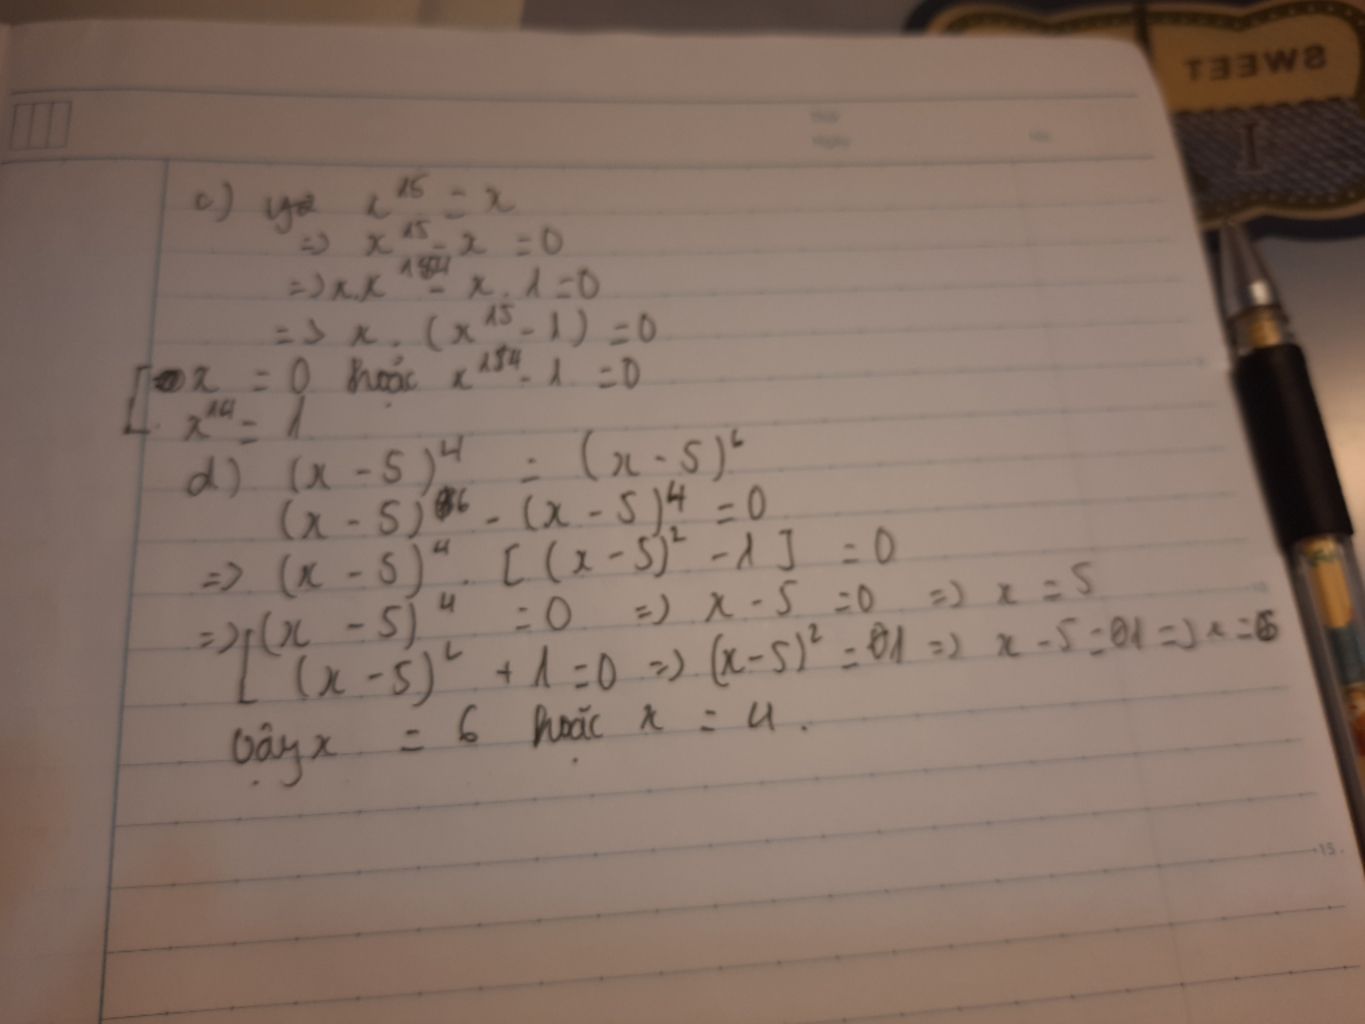 SWEET
I
c) x^15 = x
=> x^15 - x = 0
=> x.x^14 - x . 1 = 0
=> x . (x^15 - 1) = 0
[ x = 0 hoặc x^14 - 1 = 0
x^14 = 1
d) (x - 5)^4 = (x - 5)^6
(x - 5)^6 - (x - 5)^4 = 0
=> (x - 5)^4 . [ (x - 5)^2 - 1 ] = 0
=> [ (x - 5)^4 = 0 => x - 5 = 0 => x = 5
(x - 5)^2 + 1 = 0 => (x - 5)^2 = 1 => x - 5 = 1 => x = 6
Vậy x = 6 hoặc x = 4 .
15